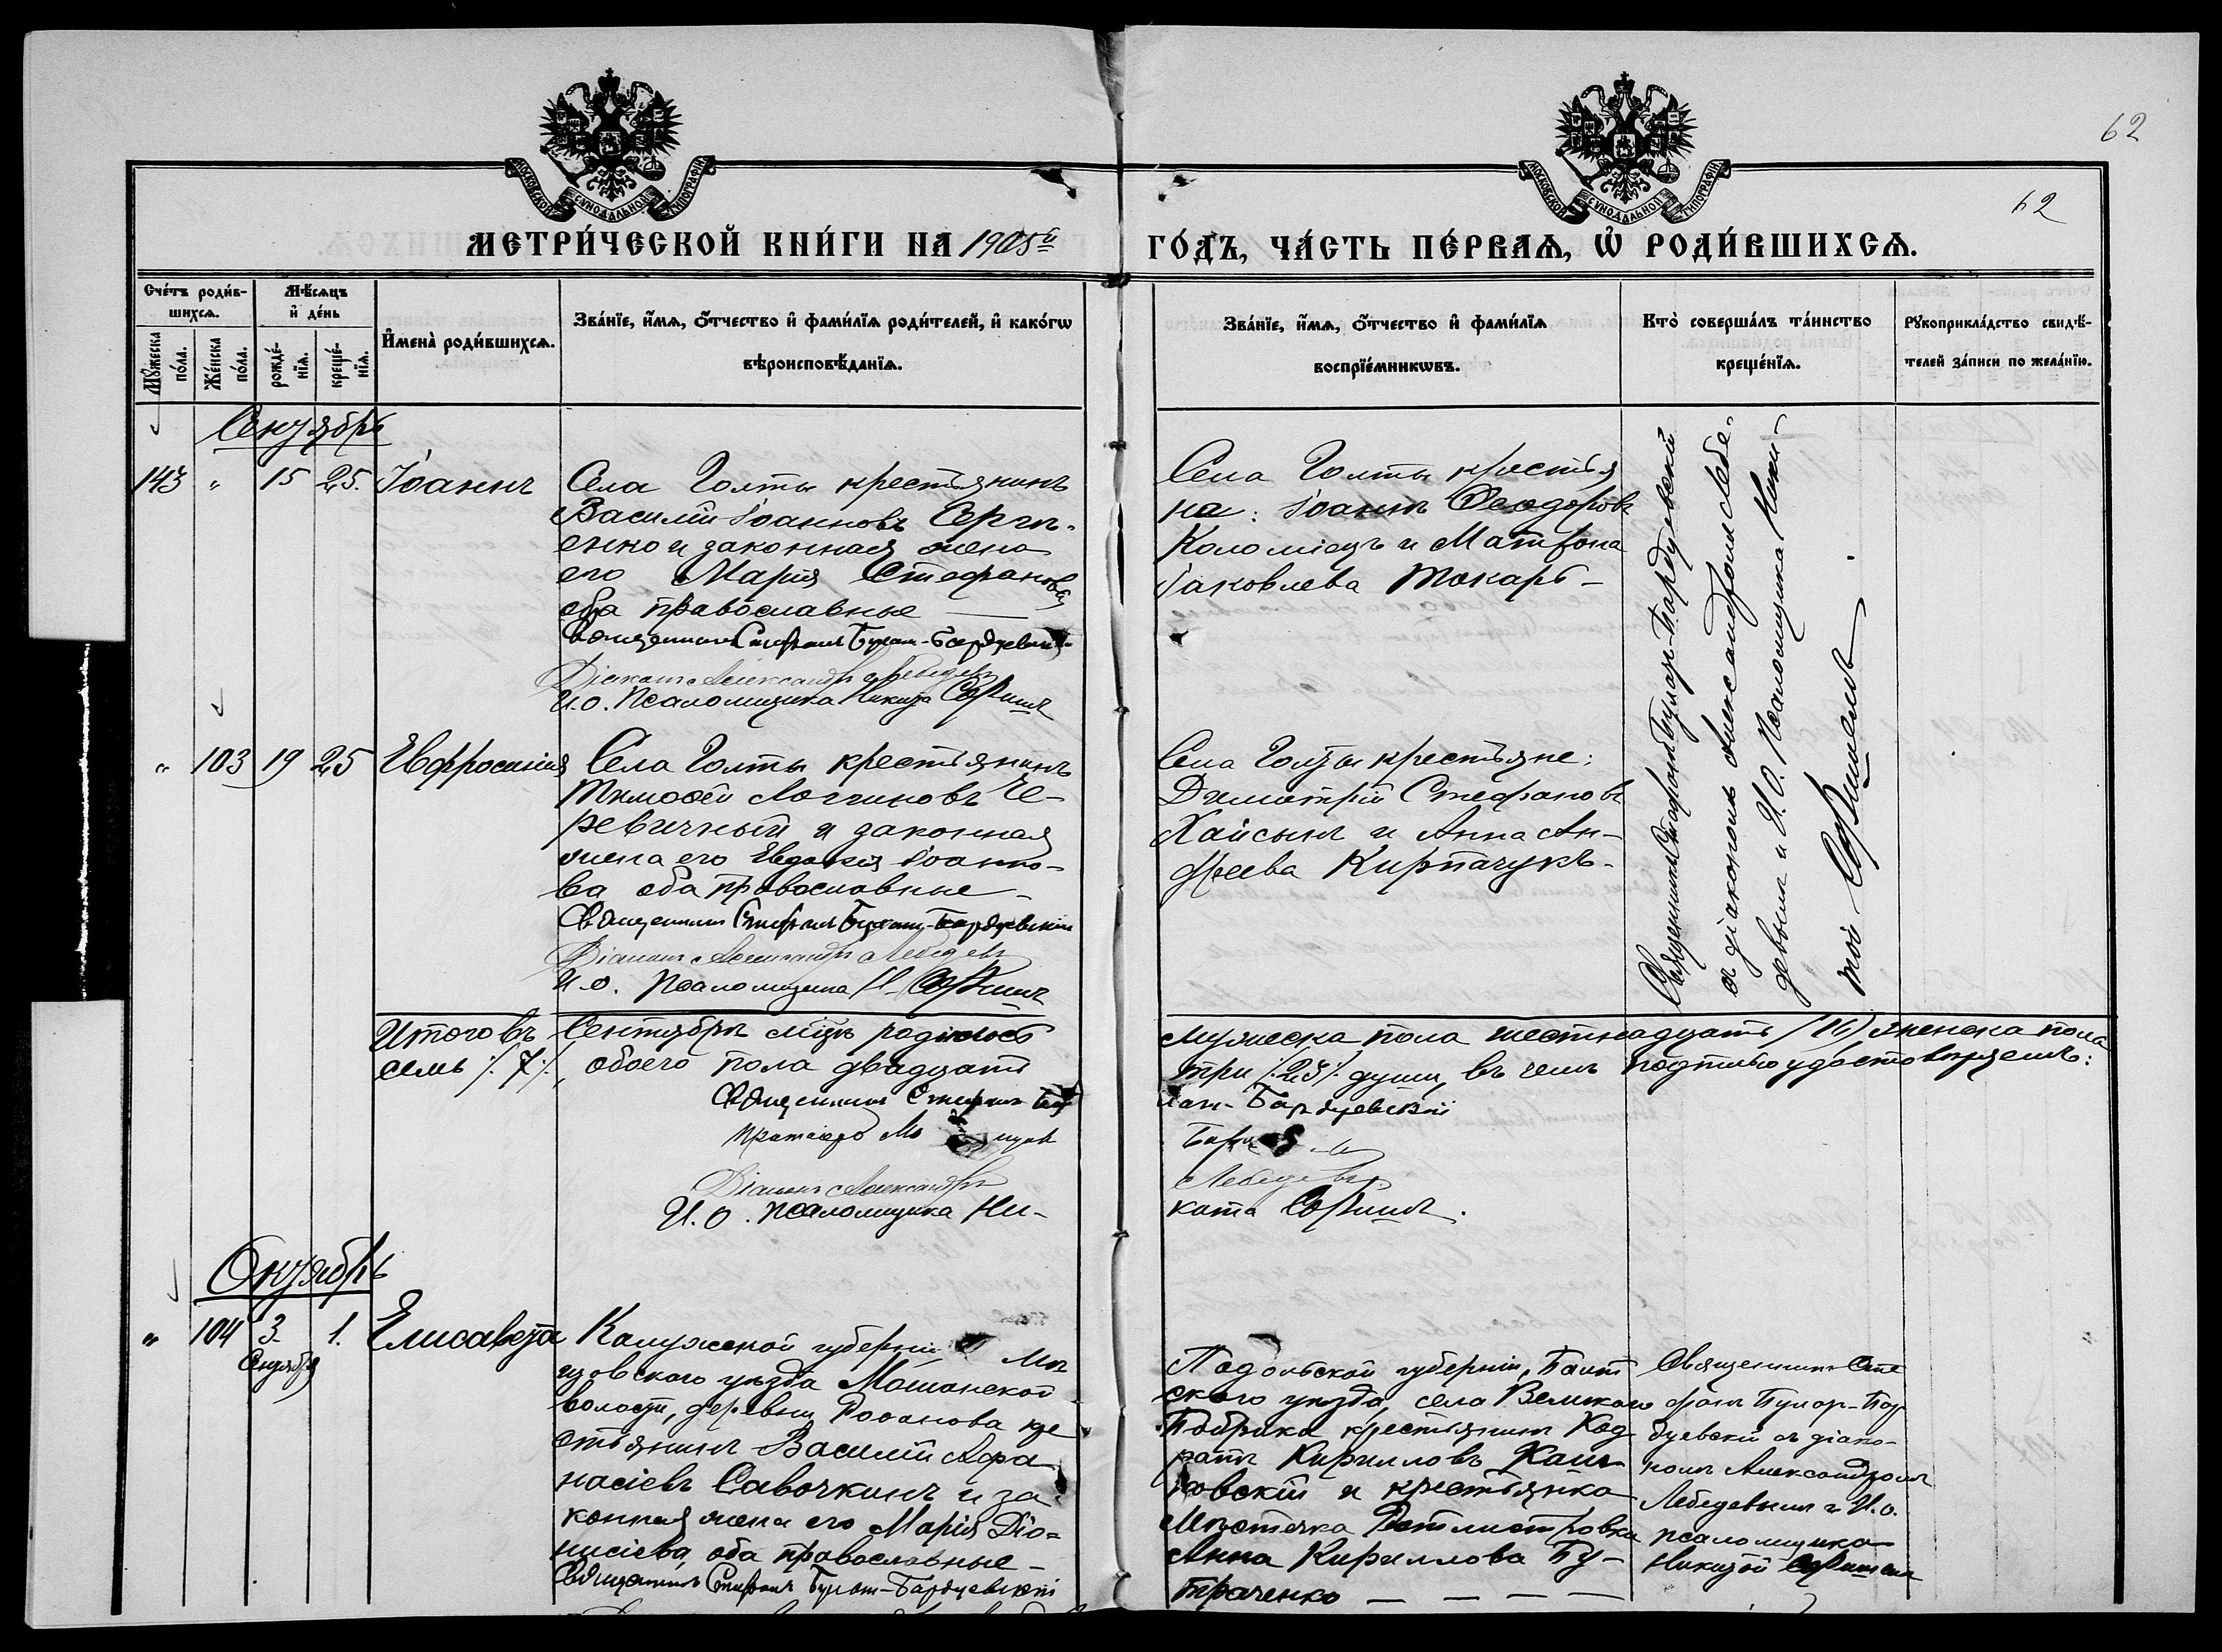 62
62
МОСКОВСКОЙ СѴНОДАЛЬНОЙ ТИПОГРАФІИ
МОСКОВСКОЙ СѴНОДАЛЬНОЙ ТИПОГРАФІИ
МЕТРИ́ЧЕСКОЙ КНИ́ГИ НА 1905й
ГО́ДЪ, ЧА́СТЬ ПЕ́РВАѦ, Ѡ҆ РОДИ́ВШИХСѦ.
Сче́тъ роди́в-
шихсѧ.
Мꙋ́жеска по́ла.
Же́нска по́ла.
Мѣ́сѧцъ
и҆ де́нь
рожде́-
нїѧ.
креще́-
нїѧ.
И҆мена̀ роди́вшихсѧ.
Зва́нїе, и҆́мѧ, ѻ҆́тчество и҆ фами́лїѧ роди́телей, и҆ како́гѡ
вѣроисповѣ́данїѧ.
Зва́нїе, и҆́мѧ, ѻ҆́тчество и҆ фами́лїѧ
воспрїе́мникѡвъ.
Кто̀ соверша́лъ та́инство
креще́нїѧ.
Рꙋкоприкла́дство свидѣ́-
телей за́писи по жела́нїю.
Сентябрь
143 " 15 25. Іоаннъ
Села Голты крестьянинъ
Василій Іоанновъ Серги-
енко и законная жена
его Марія Стефанова
оба православные
Священникъ Стефанъ Булат-Бардуевскій
Діаконъ Александръ Лебедевъ
И.о. Псаломщика Никита
Села Голты крестья
на: Іоаннъ Феодоровъ
Коломіецъ и Матрона
Іаковлева Токарь-
Священникъ Стефанъ Булат-Бардуевскій
съ діакономъ Александромъ Лебе-
девымъ и И.О. Псаломщика Ники-
той
" 103 19 25 Евфросинія
Села Голты крестьянинъ
Тимофей Логгиновъ Че-
ревичный и законная
жена его Евдокія Іоанно-
ва оба православные-
Священникъ Стефанъ Булат-Бардуевскій
Діаконъ Александръ Лебедевъ
И.о. Псаломщика Н.
Села Голты крестьяне:
Димитрій Стефановъ
Хайсынъ и Анна Ан-
дреева Кирпачукъ-
Итого въ Сентябрѣ м-цѣ родилось
мужеска пола шестнадцать /16/ женска пола
семь /:7:/, обоего пола двадцать
три /:23:/ души, въ чемъ подписью удостовѣряемъ:
Священникъ Стефанъ Бул
Бардуевскій
Діаконъ Александръ
Лебедевъ.
И.о. псаломщика Ни-
кита
Октябрь
" 104 3. 1. Елисавета
Сентября
Калужской губерніи
цовскаго уѣзда Мошонской
волости, деревни кре
стьянинъ Василій Афа
насіевъ Савочкинъ и за
конная жена его Марія Діо=
нисіева, оба православные-
Священникъ Стефанъ Булат-Бардуевскій
Подольской губерніи, Балт
скаго уѣзда, села Великаго
Бобрика крестьянинъ Код
ратъ Кирилловъ
и крестьянка
Мѣстечка
Анна Кириллова Бу-
траченко
Священникъ Сте
фанъ Булат-Бар
дуевскій съ діако-
номъ Александромъ
Лебедевымъ и И.о.
псаломщика
Никитой